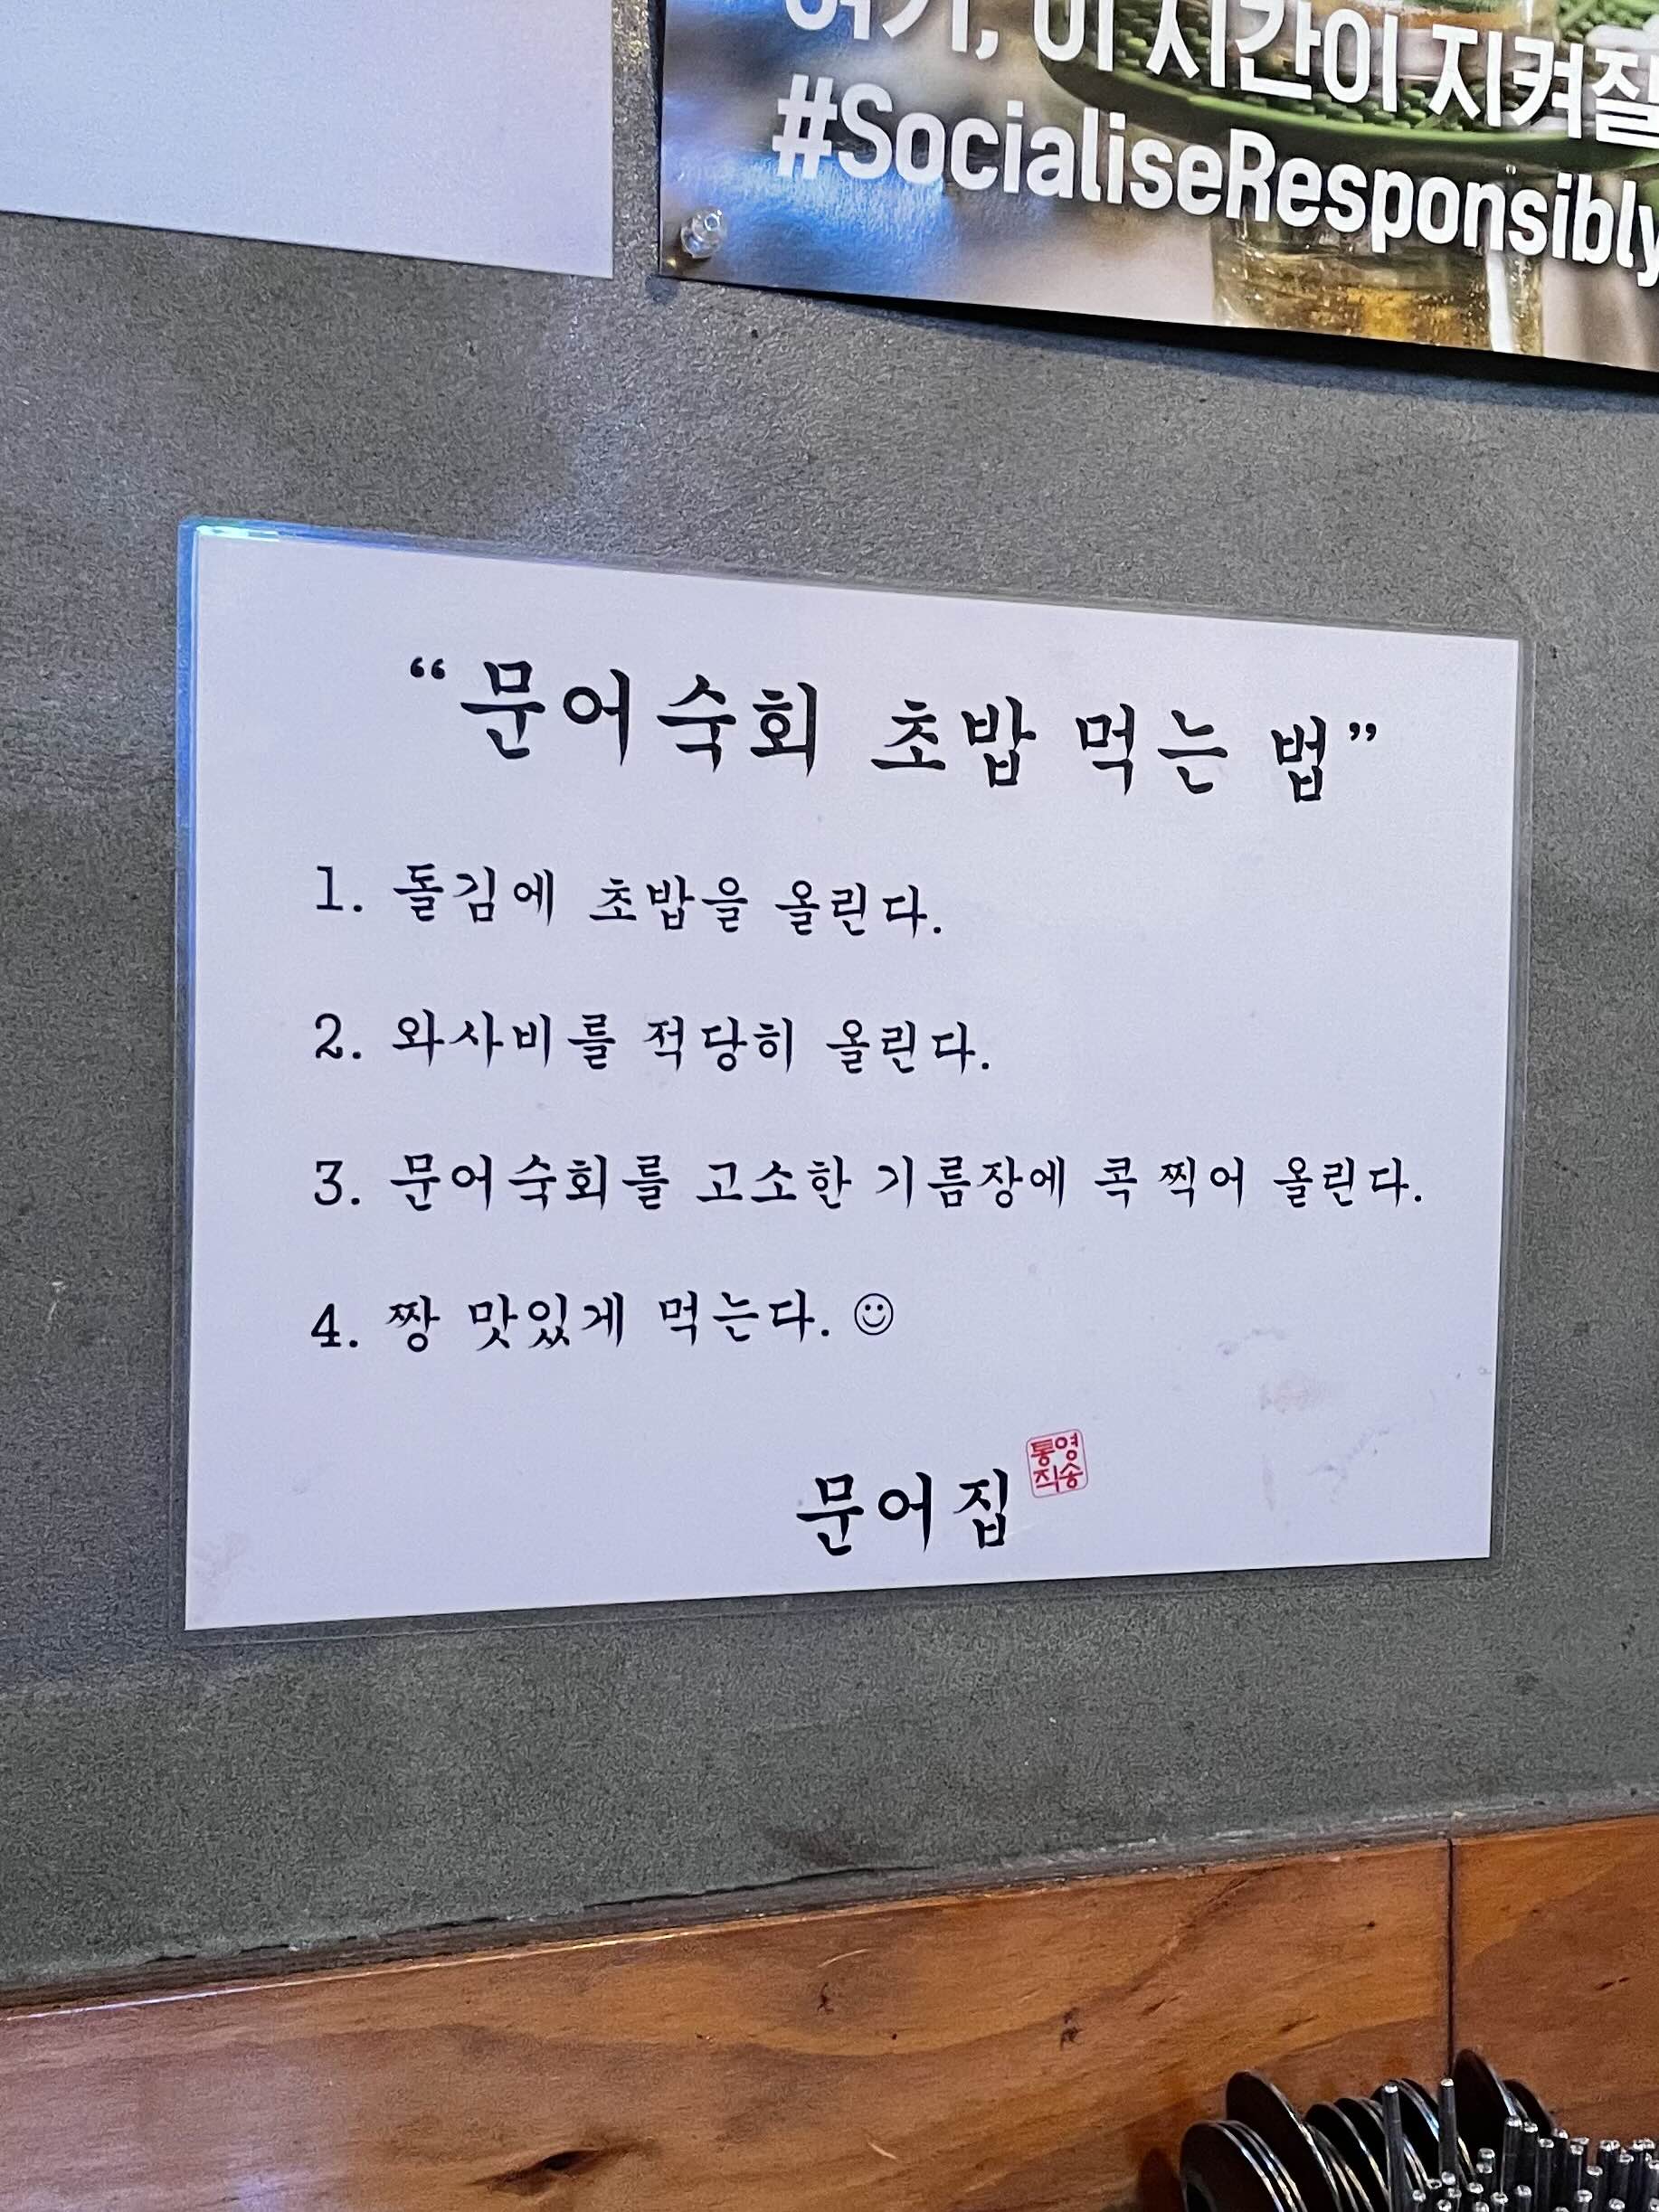 여기, 이 시간이 지켜질
#SocialiseResponsibly
“문어숙회 초밥 먹는 법”
1. 돌김에 초밥을 올린다.
2. 와사비를 적당히 올린다.
3. 문어숙회를 고소한 기름장에 콕 찍어 올린다.
4. 짱 맛있게 먹는다. ☺
문어집
통영
직송